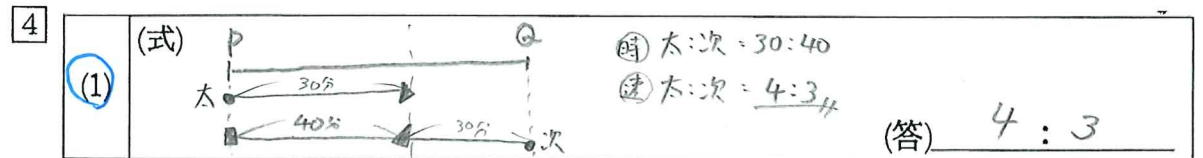 4
(1)
(式)
P Q
太 30分
40分 30分 次
時 太:次 = 30:40
速 太:次 = 4:3
(答) 4 : 3